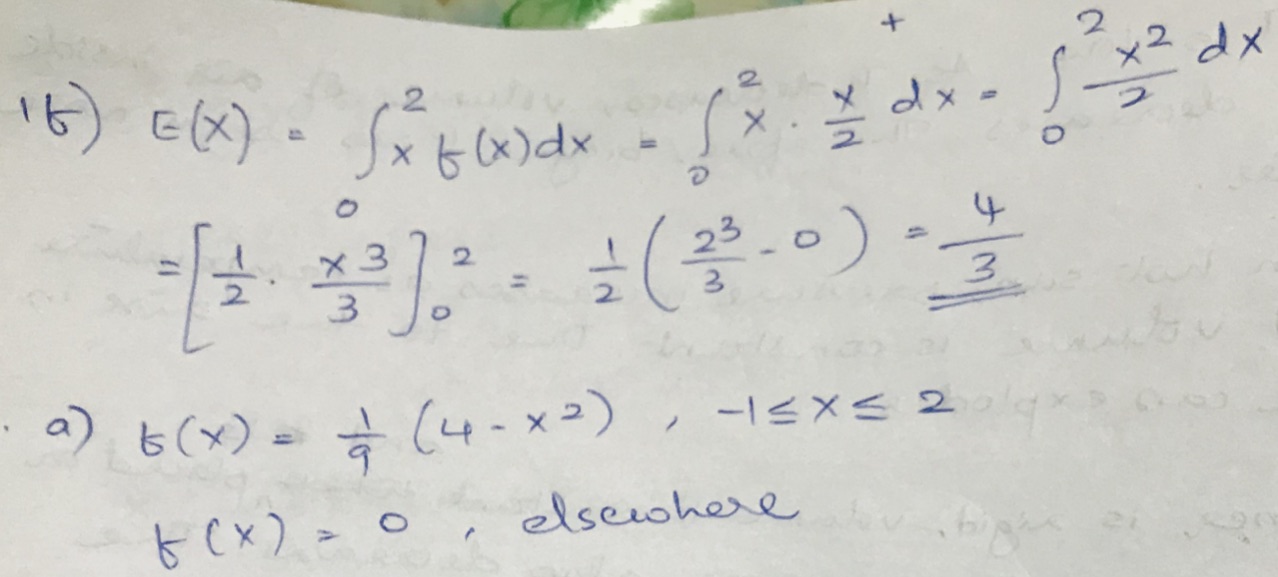 1b) E(X) = ∫₀² x f(x)dx = ∫₀² x · x/2 dx = ∫₀² x²/2 dx
= [1/2 · x3/3]₀² = 1/2 (2³/3 - 0) = 4/3
. a) f(x) = 1/9 (4 - x²) , -1 ≤ x ≤ 2
f(x) = 0 , elsewhere